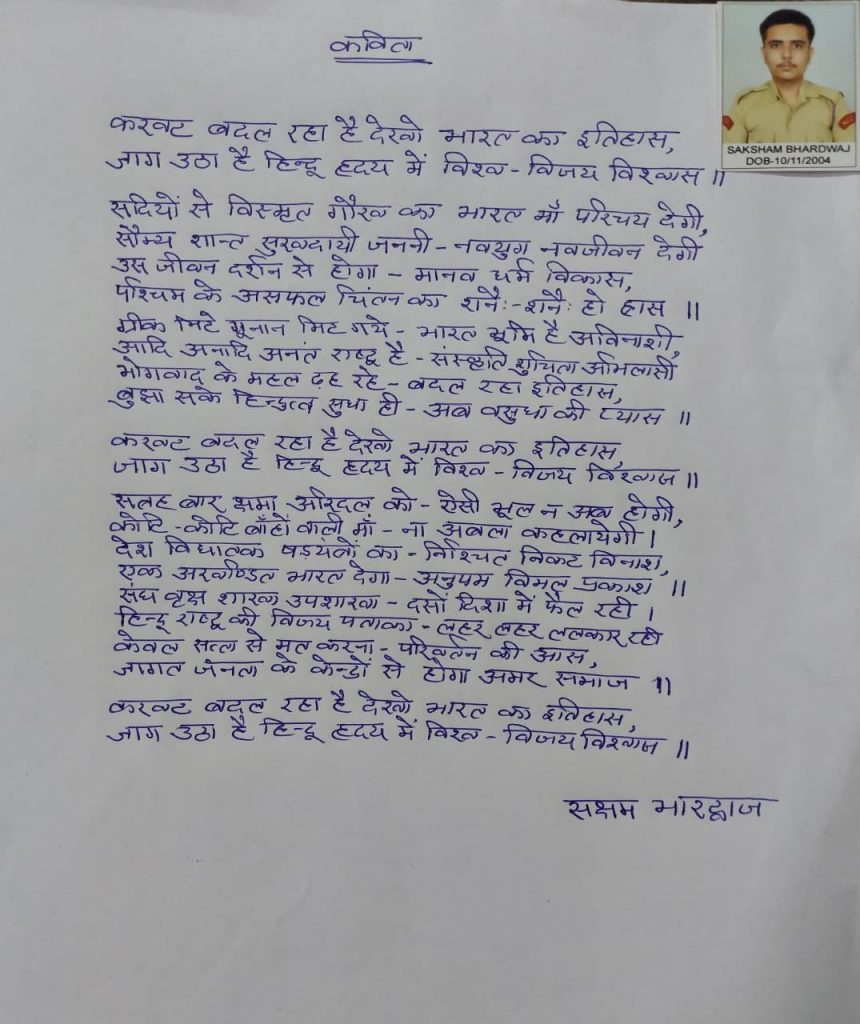 कविता
SAKSHAM BHARDWAJ
DOB-10/11/2004
करवट बदल रहा है देखो भारत का इतिहास,
जाग उठा है हिन्दू हृदय में विश्व - विजय विश्वास ॥
सदियों से विस्मृत गौरव का भारत माँ परिचय देगी,
सौम्य शान्त सुखदायी जननी - नवयुग नवजीवन देगी
उस जीवन दर्शन से होगा - मानव धर्म विकास,
पश्चिम के असफल चिंतन का शनैः - शनैः हो ह्रास ॥
ग्रीक मिटे यूनान मिट गये - भारत भूमि है अविनाशी,
आदि अनादि अनंत राष्ट्र है - संस्कृति शुचिता अभिलाषी
भोगवाद के महल ढह रहे - बदल रहा इतिहास,
बुझा सके हिन्दुत्व सुधा ही - अब वसुधा की प्यास ॥
करवट बदल रहा है देखो भारत का इतिहास,
जाग उठा है हिन्दू हृदय में विश्व - विजय विश्वास ॥
सत्रह बार क्षमा अरिदल को - ऐसी भूल न अब होगी,
कोटि - कोटि बाँहों वाली माँ - ना अबला कहलायेगी ।
देश विघातक षड्यंत्रों का - निश्चित निकट विनाश,
एक अखण्डित भारत देगा - अनुपम विमल प्रकाश ॥
संघ वृक्ष शाखा उपशाखा - दसों दिशा में फैल रही ।
हिन्दू राष्ट्र की विजय पताका - लहर लहर ललकार रही
केवल सत्ता से मत करना - परिवर्तन की आस,
जागृत जनता के केन्द्रों से होगा अमर समाज ॥
करवट बदल रहा है देखो भारत का इतिहास,
जाग उठा है हिन्दू हृदय में विश्व - विजय विश्वास ॥
सक्षम भारद्वाज